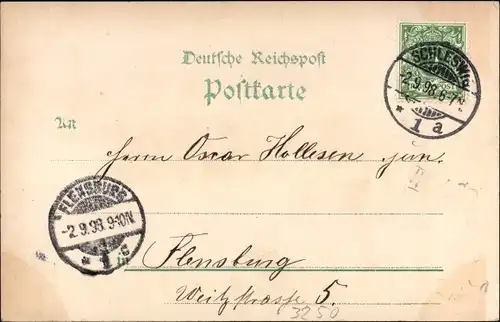 Deutsche Reichspost
Postkarte
SCHLESWIG
2.9.98.6-7N
* 1 a
An
Herrn Oscar Hollesen jun.
FLENSBURG
-2.9.98.9-10N
* 1 c
in
Flensburg
5.
3250